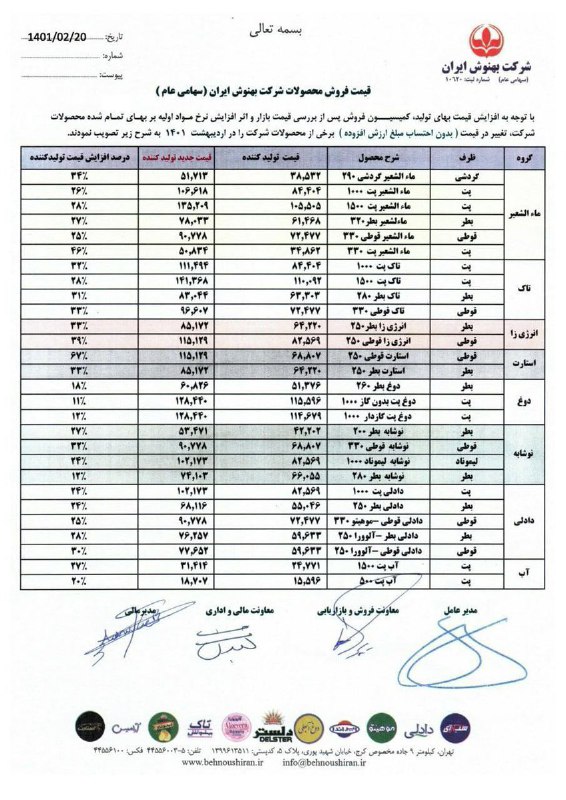 بسمه تعالی
تاریخ: 1401/02/20
شماره:
پیوست:
شرکت بهنوش ایران
(سهامی عام) شماره ثبت: ۱۰۶۲۰
قیمت فروش محصولات شرکت بهنوش ایران (سهامی عام)
با توجه به افزایش قیمت بهای تولید، کمیسیون فروش پس از بررسی قیمت بازار و اثر افزایش نرخ مواد اولیه بر بهای تمام شده محصولات
شرکت، تغییر در قیمت (بدون احتساب مبلغ ارزش افزوده) برخی از محصولات شرکت را در اردیبهشت ۱۴۰۱ به شرح زیر تصویب نمودند.
گروه ظرف شرح محصول قیمت تولید کننده قیمت جدید تولید کننده درصد افزایش قیمت تولیدکننده
ماء الشعیر
گردشی ماء الشعیر گردشی ۲۹۰ ۳۸,۵۳۲ ۵۱,۷۱۳ ۳۴٪
پت ماء الشعیر پت ۱۰۰۰ ۸۴,۴۰۴ ۱۰۶,۶۱۸ ۲۶٪
پت ماء الشعیر پت ۱۵۰۰ ۱۰۵,۵۰۵ ۱۳۵,۲۰۹ ۲۸٪
بطر ماءلشعیر بطر ۳۲۰ ۶۱,۴۶۸ ۷۸,۰۳۳ ۲۷٪
قوطی ماء الشعیر قوطی ۳۳۰ ۷۲,۴۷۷ ۹۰,۷۷۸ ۲۵٪
پت ماء الشعیر پت ۳۳۰ ۳۴,۸۶۲ ۵۰,۸۳۴ ۴۶٪
تاک
پت تاک پت ۱۰۰۰ ۸۴,۴۰۴ ۱۱۱,۴۹۴ ۳۲٪
پت تاک پت ۱۵۰۰ ۱۱۰,۰۹۲ ۱۴۱,۳۶۸ ۲۸٪
بطر تاک بطر ۲۸۰ ۶۳,۳۰۳ ۸۳,۰۴۴ ۳۱٪
قوطی تاک قوطی ۳۳۰ ۷۲,۴۷۷ ۹۶,۶۰۷ ۳۳٪
انرژی زا
بطر انرژی زا بطر ۲۵۰ ۶۴,۲۲۰ ۸۵,۱۷۲ ۳۳٪
قوطی انرژی زا قوطی ۲۵۰ ۸۲,۵۶۹ ۱۱۵,۱۲۹ ۳۹٪
استارت
قوطی استارت قوطی ۲۵۰ ۶۸,۸۰۷ ۱۱۵,۱۲۹ ۶۷٪
بطر استارت بطر ۲۵۰ ۶۴,۲۲۰ ۸۵,۱۷۲ ۳۳٪
دوغ
بطر دوغ بطر ۲۶۰ ۵۱,۳۷۶ ۶۰,۸۲۶ ۱۸٪
پت دوغ پت بدون گاز ۱۰۰۰ ۱۱۵,۵۹۶ ۱۲۸,۴۴۰ ۱۱٪
پت دوغ پت گازدار ۱۰۰۰ ۱۱۴,۶۷۹ ۱۲۸,۴۴۰ ۱۲٪
نوشابه
بطر نوشابه بطر ۲۰۰ ۴۲,۲۰۲ ۵۳,۴۷۱ ۲۷٪
قوطی نوشابه قوطی ۳۳۰ ۶۸,۸۰۷ ۹۰,۷۷۸ ۳۲٪
لیموناد نوشابه لیموناد ۱۰۰۰ ۸۲,۵۶۹ ۱۰۲,۱۷۳ ۲۴٪
بطر نوشابه بطر ۲۸۰ ۶۶,۰۵۵ ۷۴,۱۰۳ ۱۲٪
دادلی
پت دادلی پت ۱۰۰۰ ۸۲,۵۶۹ ۱۰۲,۱۷۳ ۲۴٪
بطر دادلی بطر ۲۵۰ ۵۵,۰۴۶ ۶۸,۱۱۶ ۲۴٪
قوطی دادلی قوطی -موهیتو ۳۳۰ ۷۲,۴۷۷ ۹۰,۷۷۸ ۲۵٪
بطر دادلی بطر -آلوورا ۲۵۰ ۵۹,۶۳۳ ۷۶,۲۵۷ ۲۸٪
قوطی دادلی قوطی -آلوورا ۲۵۰ ۵۹,۶۳۳ ۷۷,۶۵۲ ۳۰٪
آب
پت آب پت ۱۵۰۰ ۲۴,۷۷۱ ۳۱,۴۱۴ ۲۷٪
پت آب پت ۵۰۰ ۱۵,۵۹۶ ۱۸,۷۰۷ ۲۰٪
مدیر عامل معاونت فروش و بازاریابی معاونت مالی و اداری مدیرمالی
دادلی موهیتو دلستر DELSTER تاک
تهران، کیلومتر ۹ جاده مخصوص کرج، خیابان شهید پوری، پلاک ۵، کدپستی: ۱۳۹۹۶۱۳۵۱۱ تلفن: ۵-۴۴۵۵۶۰۰۳ فکس: ۴۴۵۵۶۱۰۰
www.behnoushiran.ir info@behnoushiran.ir